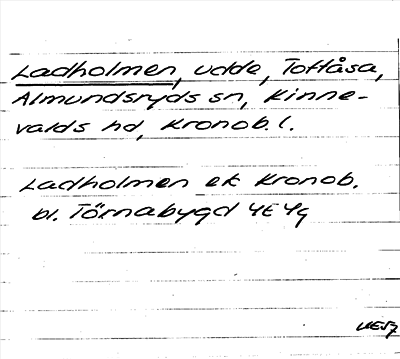 Ladholmen, udde, Toftåsa,
Almundsryds sn, Kinne-
valds hd, Kronob. l.
Ladholmen ek Kronob.
bl. Törnabygd 4E4g